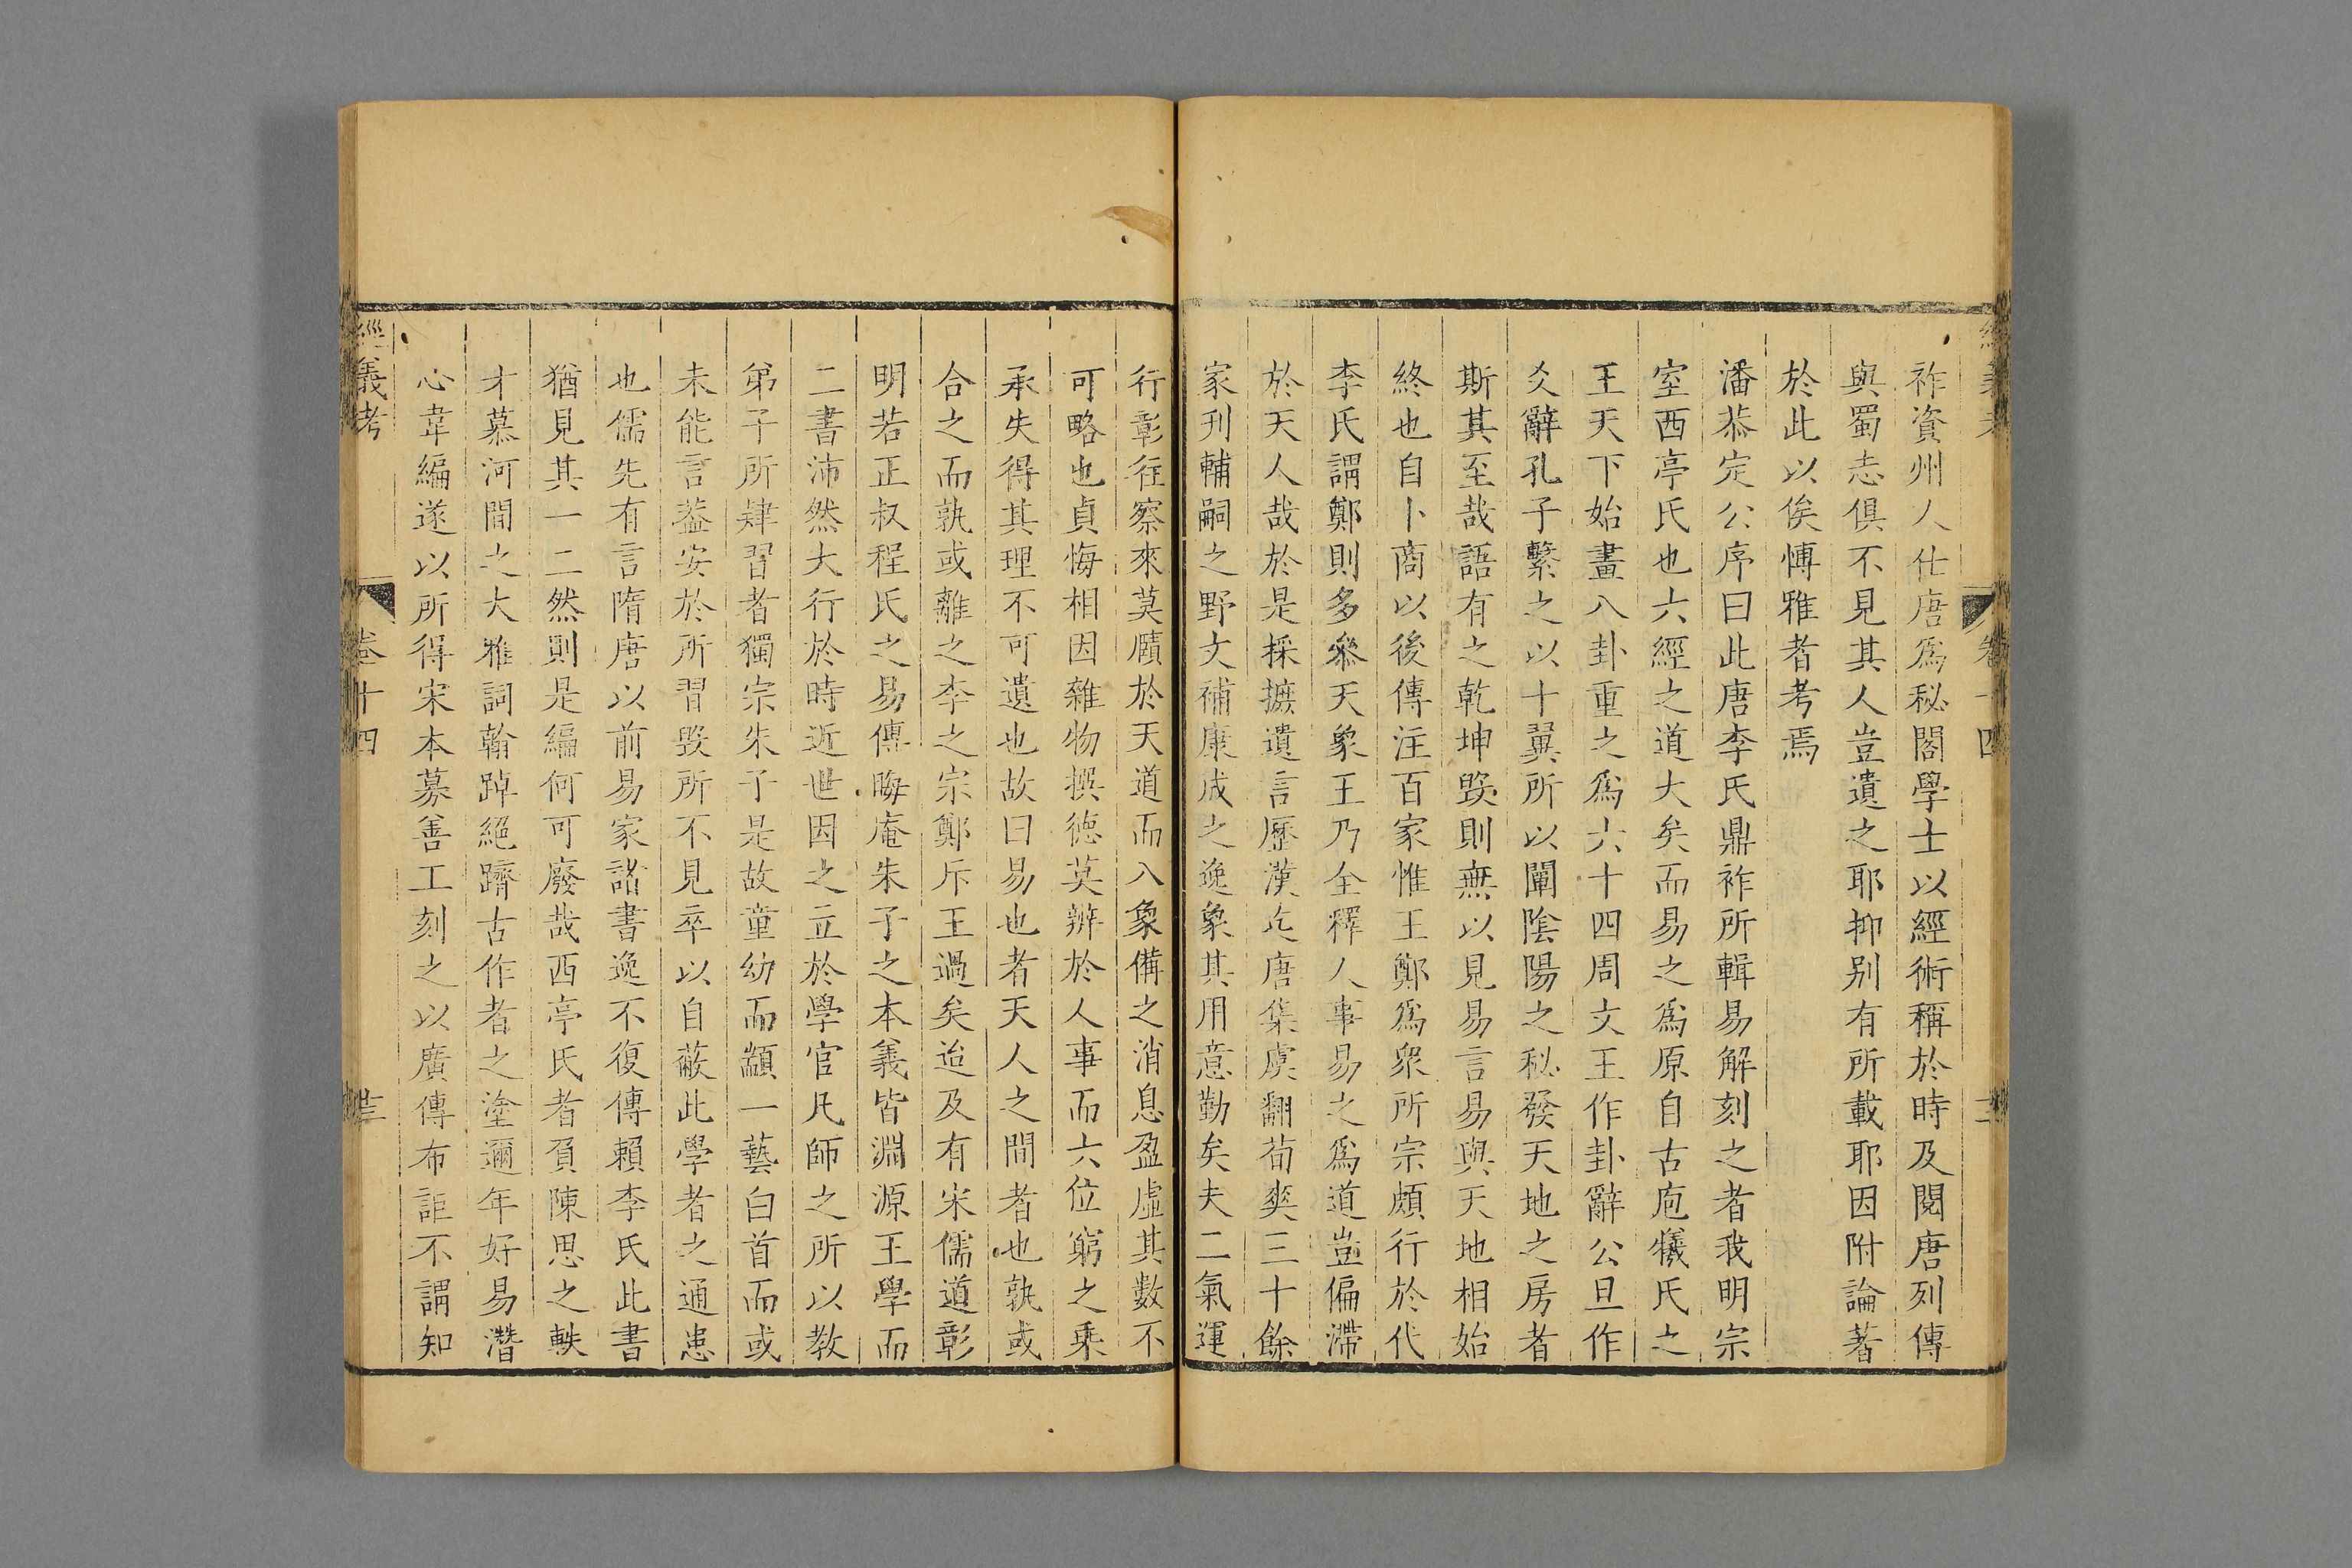 祚資州人仕唐爲秘閣學士以經術稱於時及閱唐列傳
與蜀志俱不見其人豈遺之耶抑别有所載耶因附論著
於此以俟愽雅者考焉
潘恭定公序曰此唐李氏鼎祚所輯易解刻之者我明宗
室西亭氏也六經之道大矣而易之爲原自古庖犧氏之
王天下始畫八卦重之爲六十四周文王作卦辭公旦作
爻辭孔子繫之以十翼所以闡陰陽之秘發天地之房者
斯其至哉語有之乾坤毀則無以見易言易與天地相始
終也自卜商以後傳注百家惟王鄭爲衆所宗頗行於代
李氏謂鄭則多叅天象王乃全釋人事易之爲道豈偏滯
於天人哉於是採摭遺言歷漢迄唐集虞翻荀爽三十餘
家刋輔嗣之野文補康成之逸象其用意勤矣夫二氣運
行彰徃察來莫賾於天道而入象備之消息盈虛其數不
可略也貞悔相因雜物撰德莫辨於人事而六位窮之乘
承失得其理不可遺也故曰易也者天人之間者也孰或
合之而孰或離之李之宗鄭斥王過矣迨及有宋儒道彰
明若正叔程氏之易傳晦庵朱子之本義皆淵源王學而
二書沛然大行於時近世因之立於學官凡師之所以教
弟子所肄習者獨宗朱子是故童幼而顓一藝白首而或
未能言葢安於所習毀所不見卒以自蔽此學者之通患
也儒先有言隋唐以前易家諸書逸不復傳賴李氏此書
猶見其一二然則是編何可廢哉西亭氏者負陳思之軼
才慕河間之大雅詞翰踔絕躋古作者之塗邇年好易潛
心韋編遂以所得宋本募善工刻之以廣傳布詎不謂知
經義考
卷十四